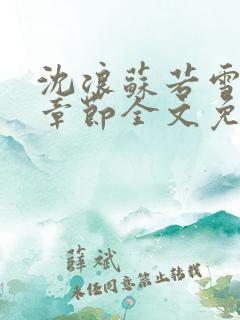 沈浪蘇若雪
章節全文免
薛斌
未经同意禁止转载